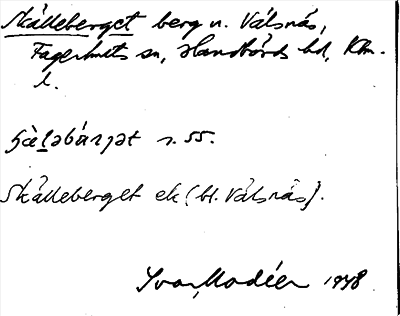 Skälleberget berg n. Välsnäs,
Fagerhults sn, Handbörds hd, Klm.
l.
s. 55.
Skälleberget ek (bl. Välsnäs).
Ivar Modéer 1948